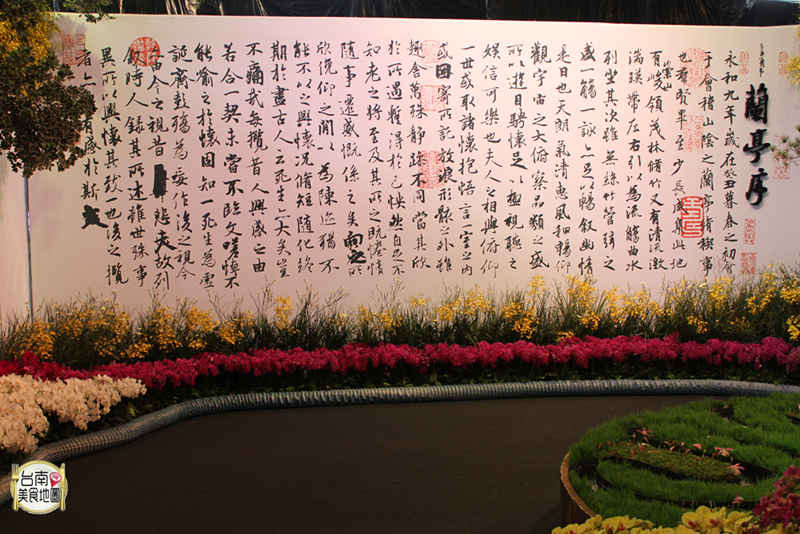 蘭亭序
永和九年歲在癸丑暮春之初會
于會稽山陰之蘭亭脩禊事
也羣賢畢至少長咸集此地
有崇山峻領茂林脩竹又有清流激
湍暎帶左右引以為流觴曲水
列坐其次雖無絲竹管弦之
盛一觴一詠亦足以暢敘幽情
是日也天朗氣清惠風和暢仰
觀宇宙之大俯察品類之盛
所以遊目騁懷足以極視聽之
娛信可樂也夫人之相與俯仰
一世或取諸懷抱悟言一室之內
或因寄所託放浪形骸之外雖
趣舍萬殊靜躁不同當其欣
於所遇蹔得於己怏然自足不
知老之將至及其所之既惓情
隨事遷感慨係之矣向之所
欣俛仰之閒以為陳迹猶不
能不以之興懷況脩短隨化終
期於盡古人云死生亦大矣豈
不痛哉每攬昔人興感之由
若合一契未嘗不臨文嗟悼不
能喻之於懷固知一死生為虛
誕齊彭殤為妄作後之視今
今之視昔悲夫故列
敘時人錄其所述雖世殊事
異所以興懷其致一也後之攬
者有感於斯文
台南美食地圖